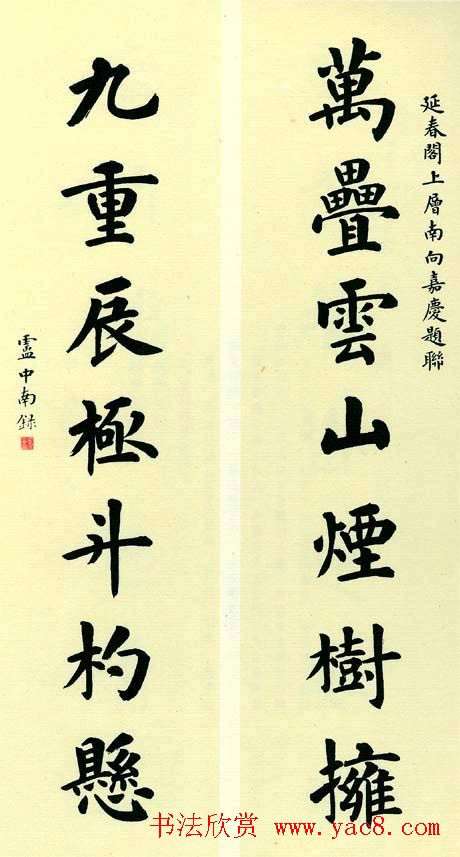 延春閣上層南向嘉慶題聯
萬疊雲山煙樹擁
九重辰極斗杓懸
盧中南録
书法欣赏 www.yac8.com